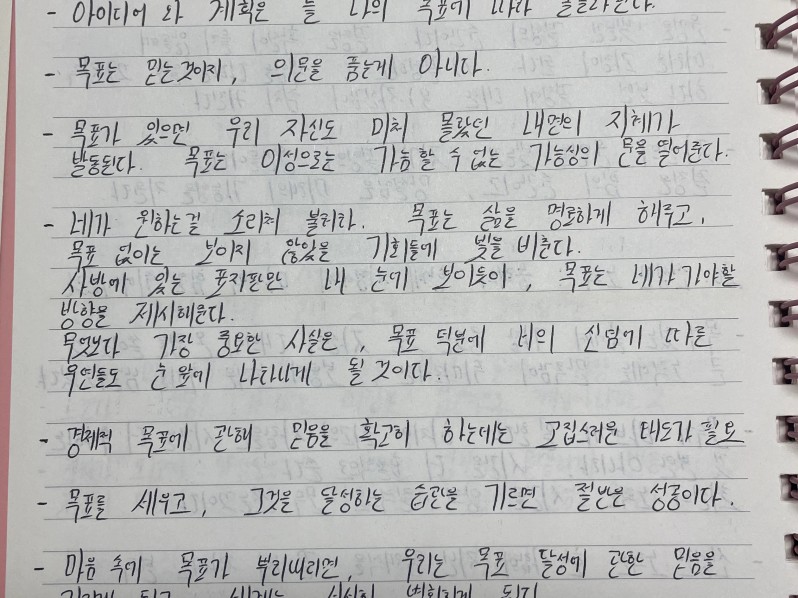 - 아이디어 와 계획은 늘 나의 목표에 따라
- 목표는 믿는 것이지, 의문을 품는게 아니다.
- 목표가 있으면 우리 자신도 미처 몰랐던 내면의 지혜가
발동된다. 목표는 이성으로는 가늠할 수 없는 가능성의 문을 열어준다.
- 네가 원하는걸 소리쳐 불러라. 목표는 삶을 명료하게 해주고,
목표 없이는 보이지 않았을 기회들에 빛을 비춘다.
사방에 있는 표지판만 내 눈에 보이듯이, 목표는 네가 가야할
방향을 제시해준다.
무엇보다 가장 중요한 사실은, 목표 덕분에 너의 신념에 따른
우연들도 눈 앞에 나타나게 될 것이다.
- 경제적 목표에 관해 믿음을 확고히 하는데는 고집스러운 태도가 필요
- 목표를 세우고, 그것을 달성하는 습관을 기르면 절반은 성공이다.
- 마음 속에 목표가 뿌리내리면, 우리는 목표 달성에 관한 믿음을